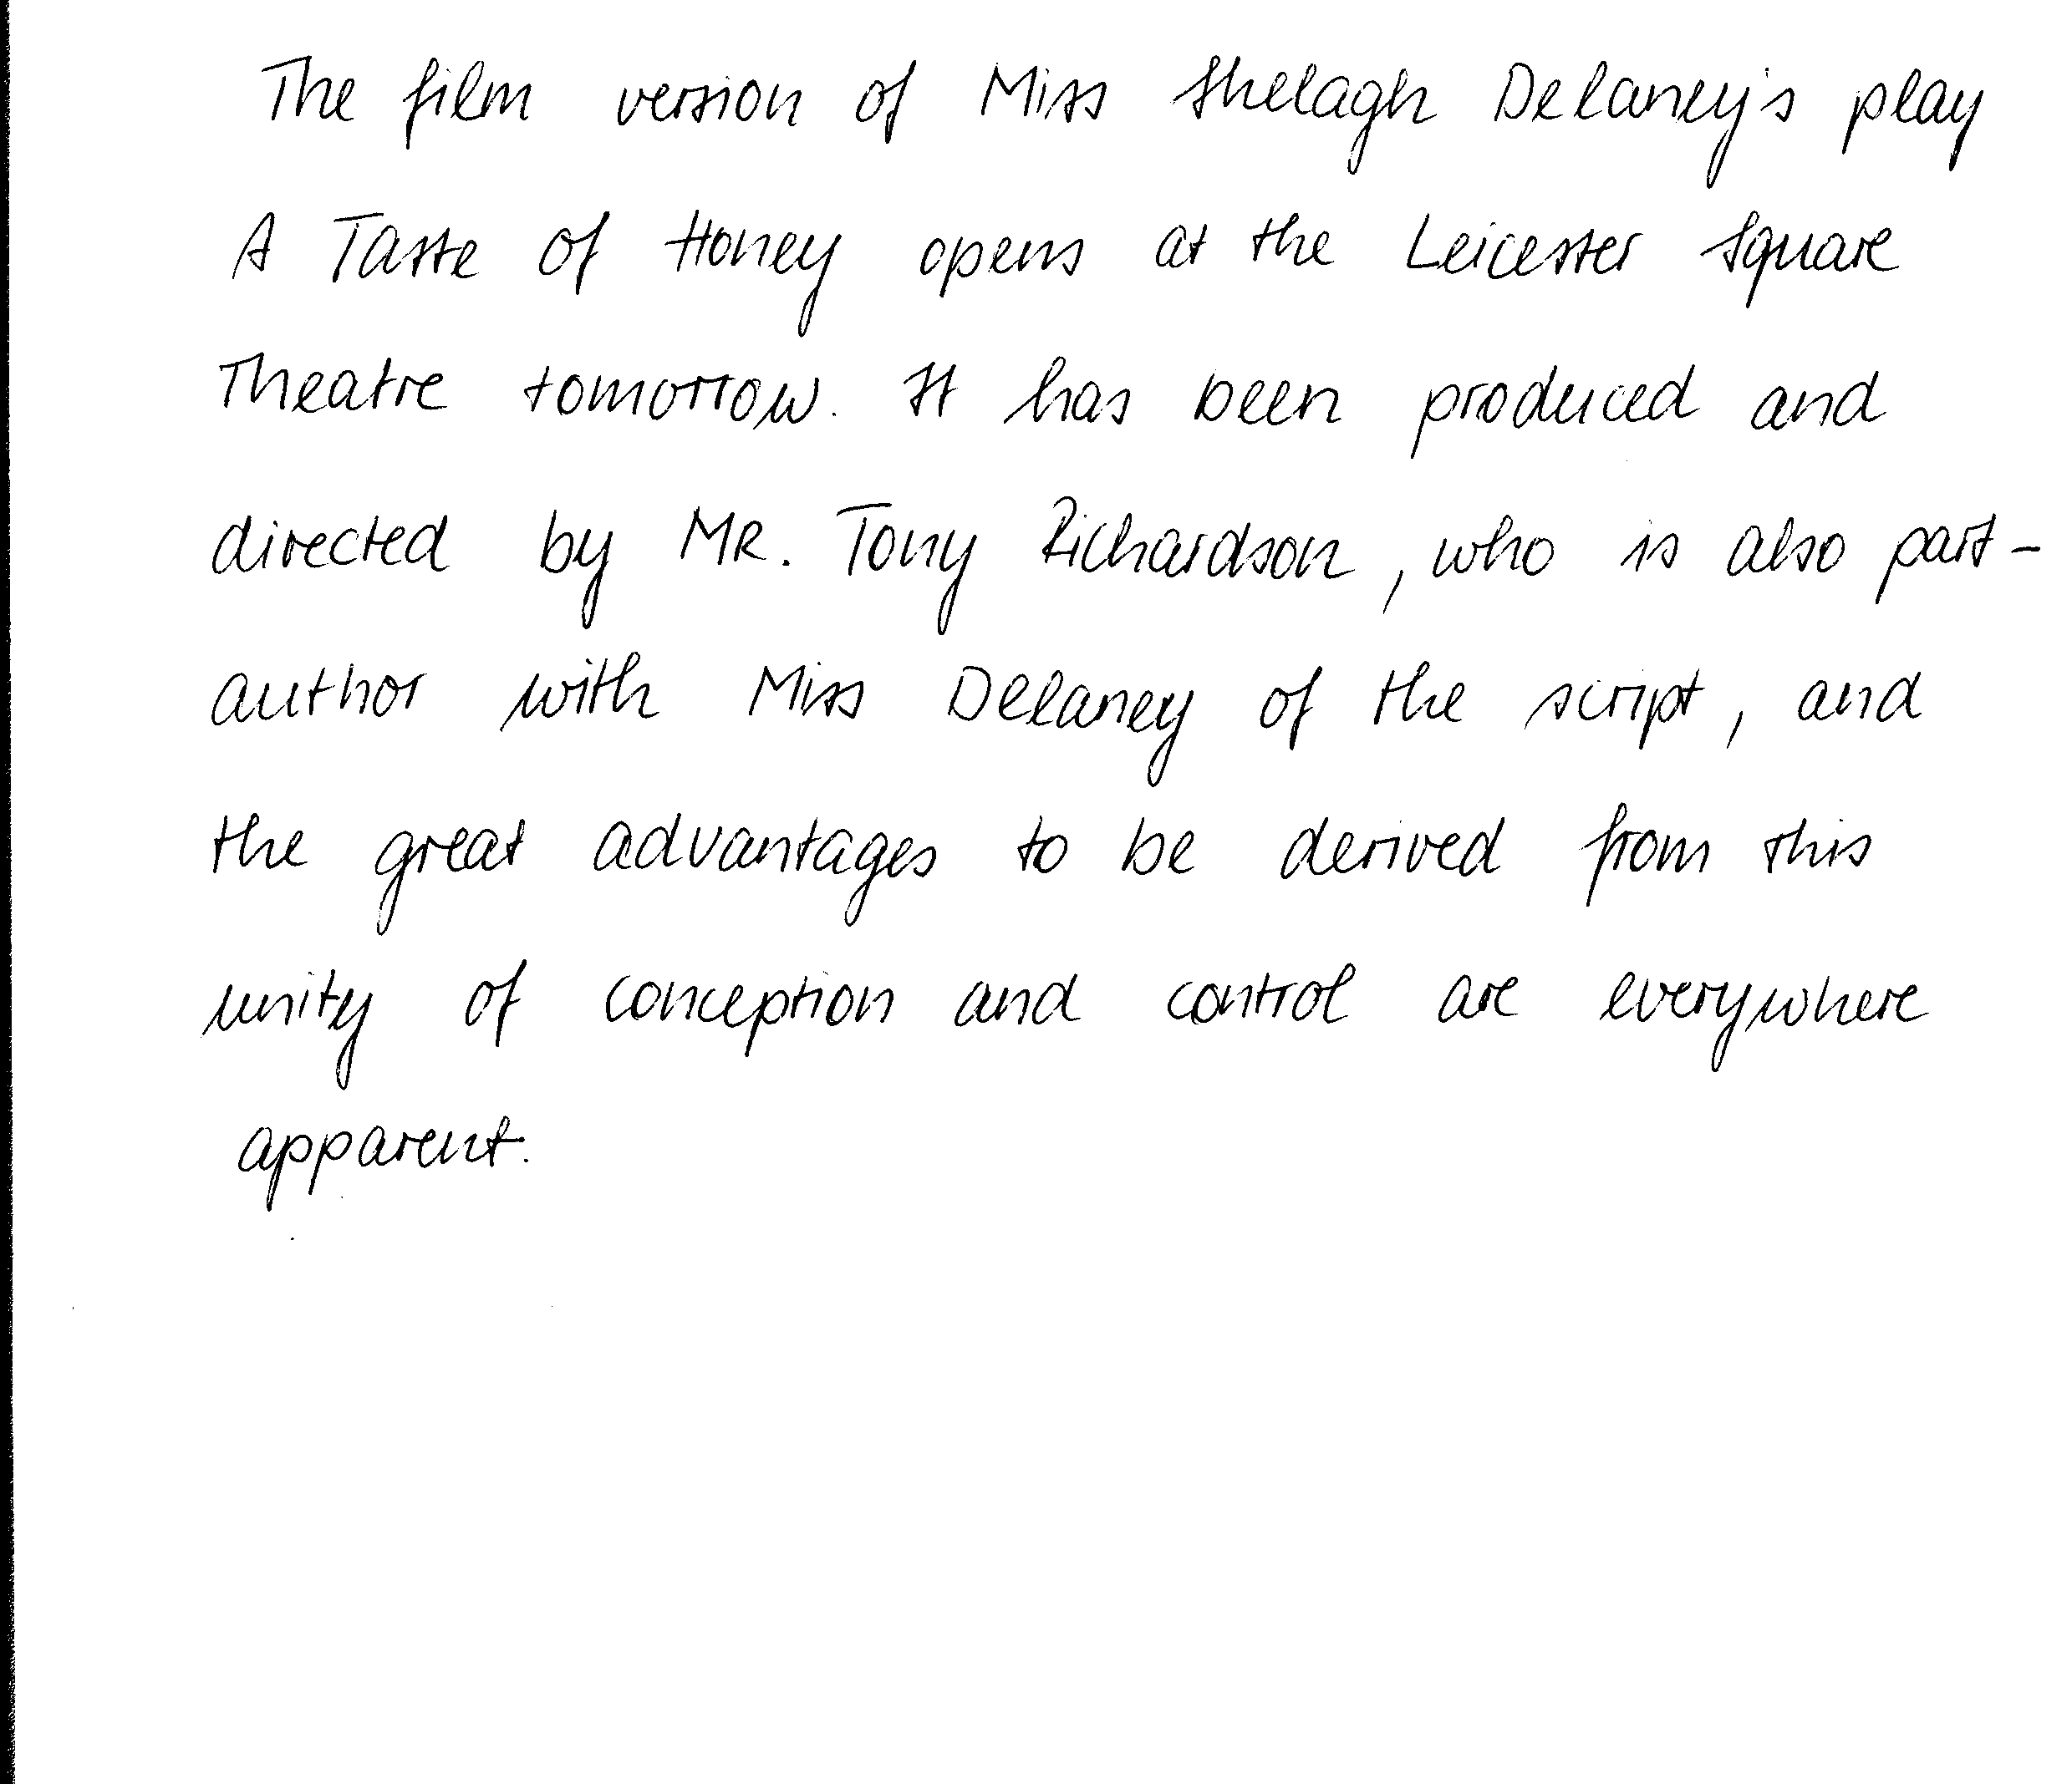 The film version of Miss Shelagh Delaney's play
A Taste of Honey opens at the Leicester Square
Theatre tomorrow. It has been produced and
directed by MR. Tony Richardson, who is also part-
author with Miss Delaney of the script, and
the great advantages to be derived from this
unity of conception and control are everywhere
apparent.